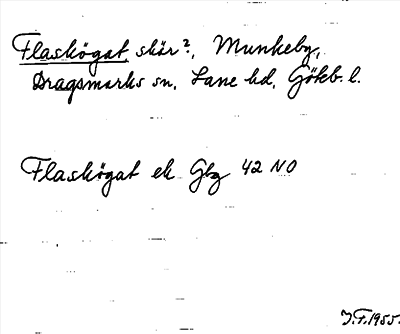 Flaskögat, skär?, Munkeby,
Dragsmarks sn, Lane hd, Göteb. l.
Flaskögat ek Gbg 42 NO
J.F. 1955.